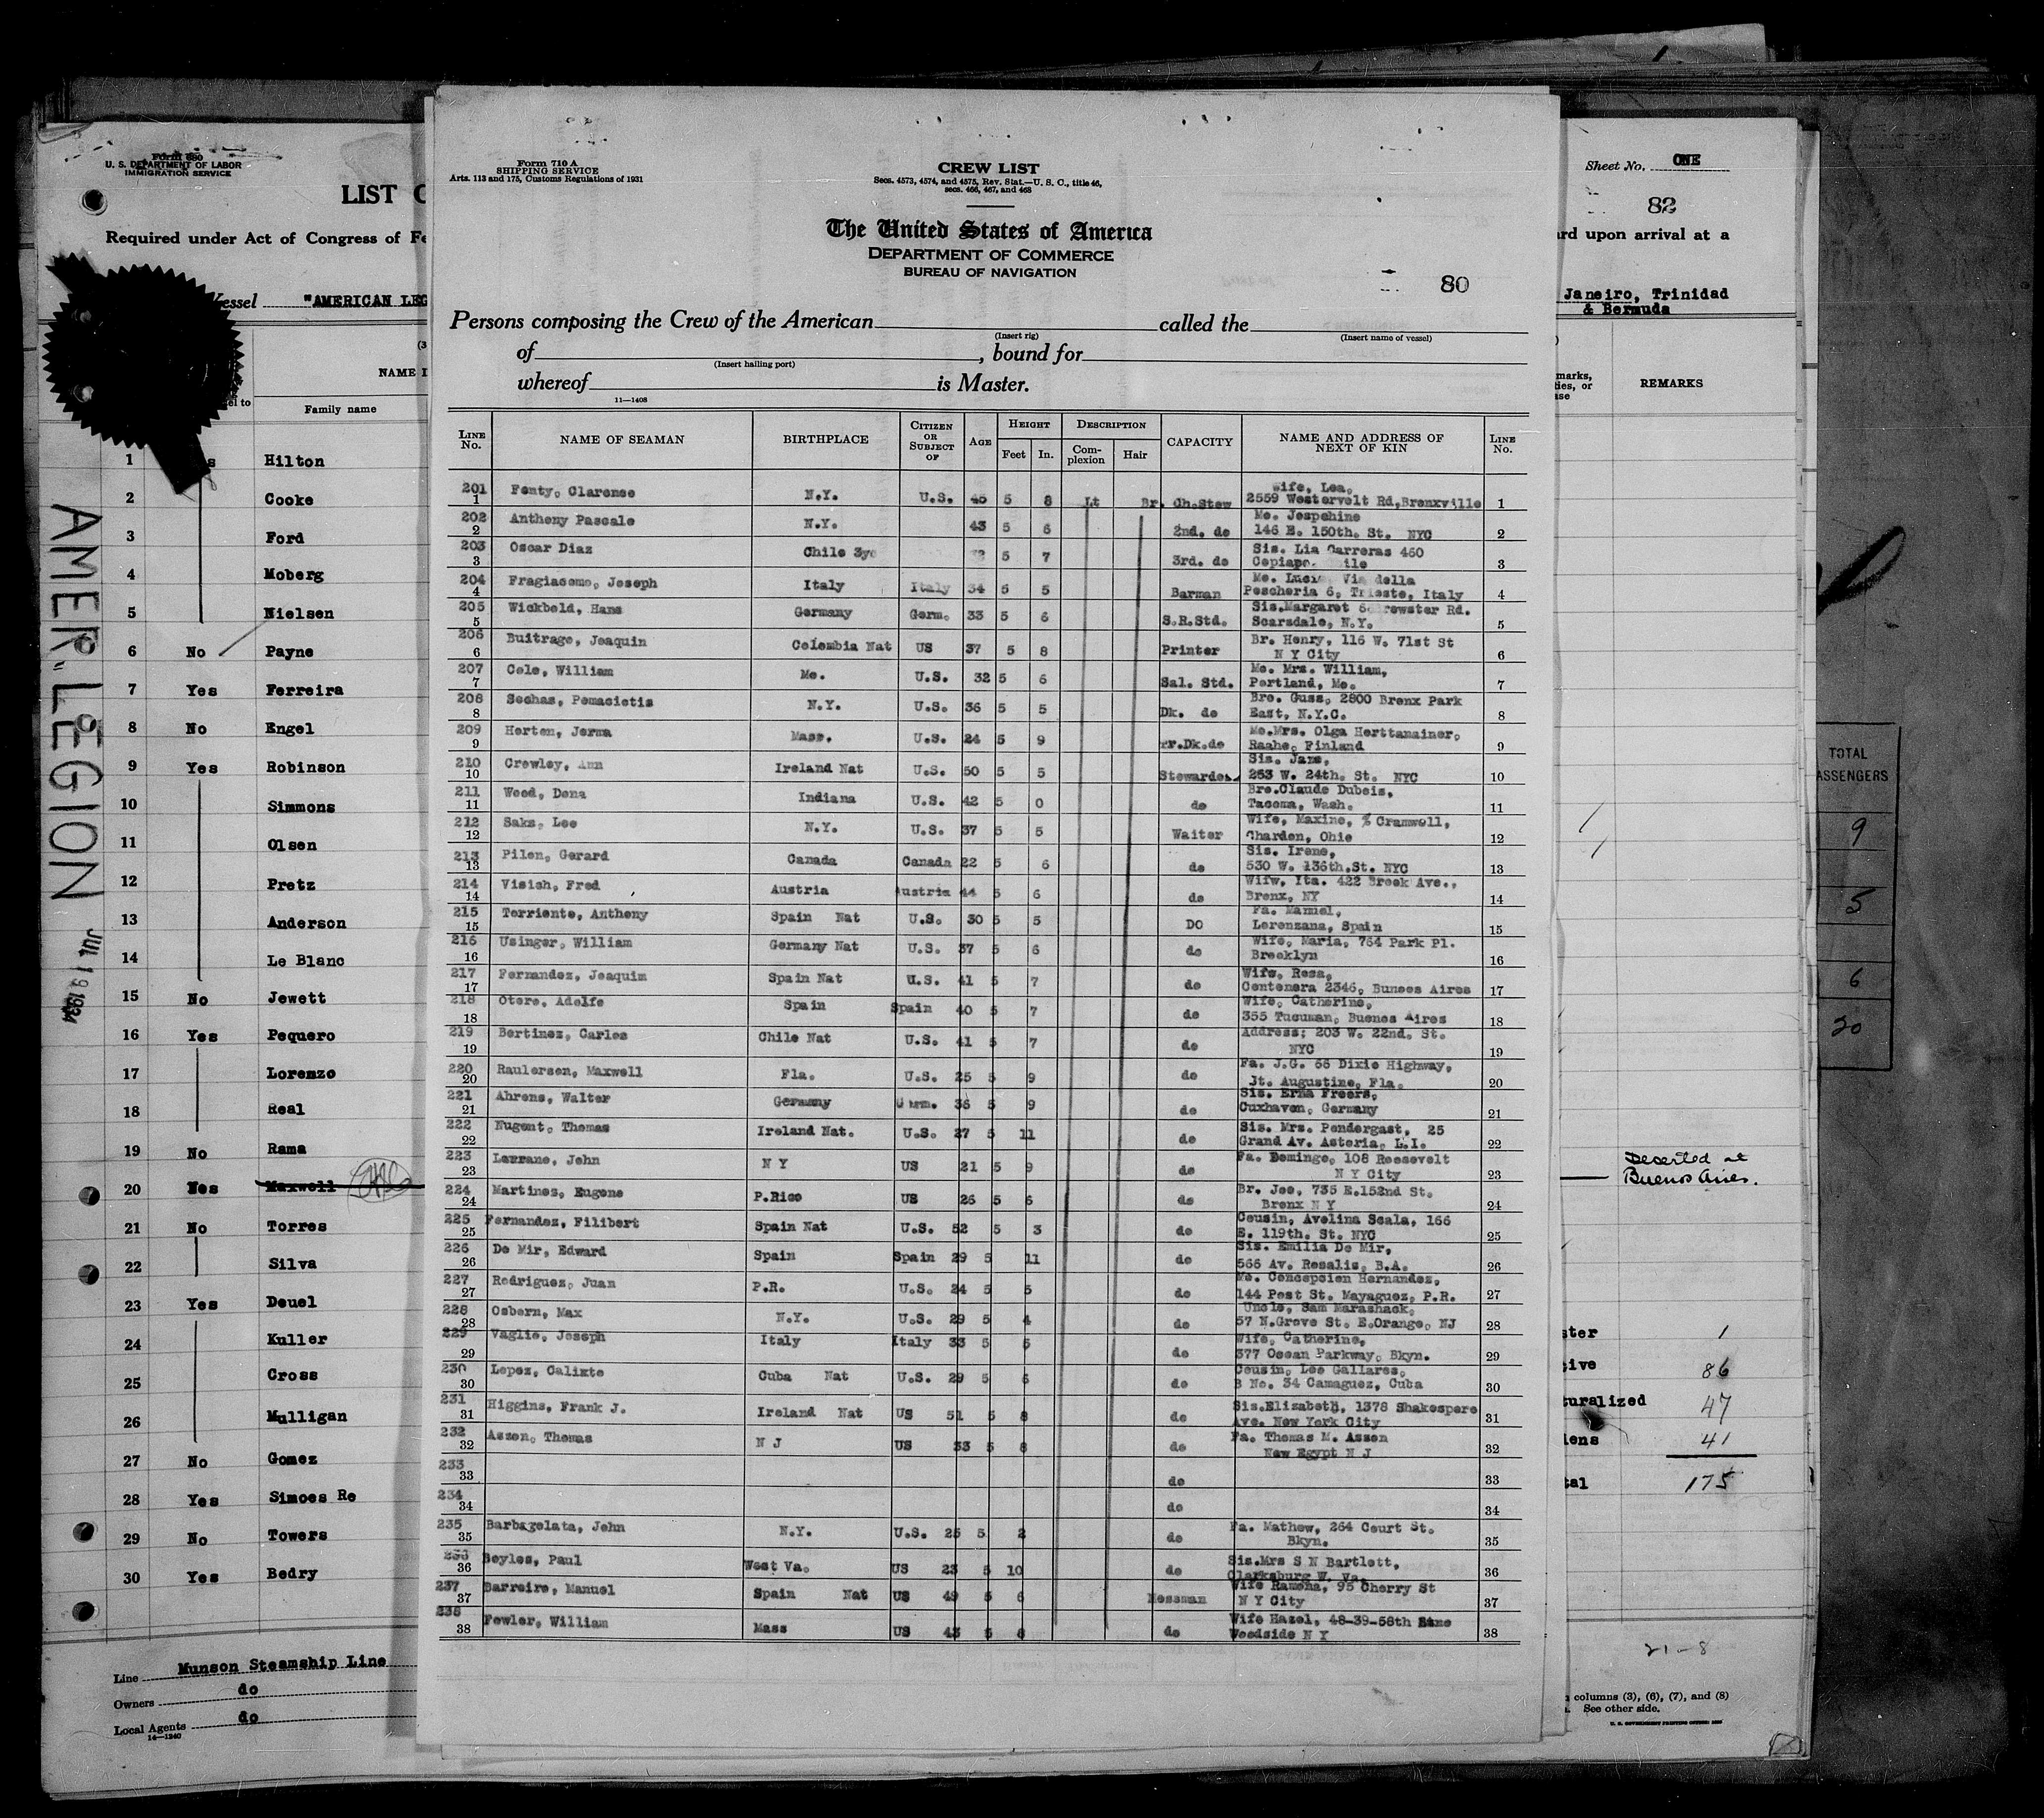 Form 680
U. S. DEPARTMENT OF LABOR
IMMIGRATION SERVICE
LIST
Required under Act of Congress of Fe
Vessel "AMERICAN LEG
NAME I
Family name
1 Hilton
2 Cooke
3 Ford
4 Moberg
5 Nielsen
6 No Payne
7 Yes Ferreira
8 No Engel
9 Yes Robinson
10 Simmons
11 Olsen
12 Pretz
13 Anderson
14 Le Blanc
15 No Jewett
16 Yes Pequero
17 Lorenzo
18 Real
19 No Rama
20 Maxwell
21 No Torres
22 Silva
23 Yes Deuel
24 Kuller
25 Cross
26 Mulligan
27 No Gomez
28 Yes Simoes Re
29 No Towers
30 Yes Bedry
Line Munson Steamship Line
Owners do
Local Agents do
14—1240
AMER. LEGION JUL 19 1934
Form 710 A
SHIPPING SERVICE
Arts. 113 and 175, Customs Regulations of 1931
CREW LIST
Secs. 4573, 4574, and 4575, Rev. Stat.—U. S. C., title 46,
secs. 466, 467, and 468
The United States of America
DEPARTMENT OF COMMERCE
BUREAU OF NAVIGATION
80
Persons composing the Crew of the American called the
(Insert rig) (Insert name of vessel)
of , bound for
(Insert hailing port)
whereof is Master.
11—1408
LINE No. NAME OF SEAMAN BIRTHPLACE CITIZEN OR SUBJECT OF AGE HEIGHT Feet In. DESCRIPTION Complexion Hair CAPACITY NAME AND ADDRESS OF NEXT OF KIN LINE No.
201 1 Fenty, Clarence N.Y. U.S. 45 5 8 Lt Br. Ch.Stew Wife, Lea, 2559 Westervelt Rd,Bronxville 1
202 2 Anthony Pascale N.Y. 43 5 6 2nd. do Mo. Jospehine 146 E. 150th. St. NYC 2
203 3 Oscar Diaz Chile 3yo 5 7 3rd. do Sis. Lia Carreras 450 Copiapo ile 3
204 4 Fragiacomo, Joseph Italy Italy 34 5 5 Barman Mo. Via della Pescheria 6, Trieste, Italy 4
205 5 Wickbold, Hans Germany Germ. 33 5 6 S.R.Std. Sis.Margaret rewster Rd. Scarsdale, N.Y. 5
206 6 Buitrago, Joaquin Colombia Nat US 37 5 8 Printer Br. Henry, 116 W. 71st St N Y City 6
207 7 Cole, William Me. U.S. 32 5 6 Sal. Std. Mo. Mrs. William, Portland, Me. 7
208 8 Sochas, Pomacictis N.Y. U.S. 36 5 5 Dk. do Bro. Guss, 2800 Bronx Park East, N.Y.C. 8
209 9 Horton, Jorma Mass. U.S. 24 5 9 rr.Dk.do Mo.Mrs. Olga Herttamainer, Raahe, Finland 9
210 10 Crowley, Ann Ireland Nat U.S. 50 5 5 Stewardess Sis. Jane, 263 W. 24th. St. NYC 10
211 11 Wood, Dona Indiana U.S. 42 5 0 do Bro.Claude Dubois, Tacoma, Wash. 11
212 12 Saks, Leo N.Y. U.S. 37 5 5 Waiter Wife, Maxine, % Cramwell, Chardon, Ohio 12
213 13 Pilon, Gerard Canada Canada 22 5 6 do Sis. Irene, 530 W. 136th.St. NYC 13
214 14 Visich, Fred Austria Austria 44 5 6 do Wifw, Ita. 422 Brook Ave., Bronx, NY 14
215 15 Torriente, Anthony Spain Nat U.S. 30 5 5 DO Fa. Manuel, Lorenzana, Spain 15
216 16 Usinger, William Germany Nat U.S. 37 5 6 do Wife, Maria, 764 Park Pl. Brooklyn 16
217 17 Fernandez, Joaquim Spain Nat U.S. 41 5 7 do Wife, Rosa, Centenera 2346, Bunoes Aires 17
218 18 Otero, Adolfo Spain Spain 40 5 7 do Wife, Catherine, 355 Tucuman, Buenos Aires 18
219 19 Bertinez, Carlos Chile Nat U.S. 41 5 7 do Address: 203 W. 22nd. St. NYC 19
220 20 Raulersen, Maxwell Fla. U.S. 25 5 9 do Fa. J.G. 66 Dixie Highway, St. Augustine, Fla. 20
221 21 Ahrens, Walter Germany Germ. 36 5 9 do Sis. Erna Freers, Cuxhaven, Germany 21
222 22 Nugent, Thomas Ireland Nat. U.S. 27 5 11 do Sis. Mrs. Pendergast, 25 Grand Av. Astoria, L.I. 22
223 23 Lorrano, John N Y US 21 5 9 do Fa. Domingo, 108 Roosevelt N Y City 23
224 24 Martines, Eugene P.Rico US 26 5 6 do Br. Joe, 735 E.152nd St. Bronx N Y 24
225 25 Fernandez, Filibert Spain Nat U.S. 52 5 3 do Cousin, Avelina Scala, 166 E. 119th. St. NYC 25
226 26 De Mir, Edward Spain Spain 29 5 11 do Sis. Emilia De Mir, 566 Av. Rosalis, B.A. 26
227 27 Rodriguez, Juan P.R. U.S. 24 5 5 do Mo. Concepcion Hernandez, 144 Post St. Mayaguez, P.R. 27
228 28 Osborn, Max N.Y. U.S. 29 5 4 do Uncle, Sam Marashack, 57 N.Grove St. E.Orange, NJ 28
229 29 Vaglio, Joseph Italy Italy 33 5 5 do Wife, Catherine, 377 Ocean Parkway, Bkyn. 29
230 30 Lopez, Calixto Cuba Nat U.S. 29 5 6 do Cousin, Leo Gallares, B No. 34 Camaguez, Cuba 30
231 31 Higgins, Frank J. Ireland Nat US 51 5 8 do Sis.Elizabeth, 1378 Shakespere Ave. New York City 31
232 32 Assen, Thomas N J US 33 5 8 do Fa. Thomas M. Assen New Egypt N J 32
233 33 do 33
234 34 do 34
235 35 Barbagelata, John N.Y. U.S. 25 5 2 do Fa. Mathew, 264 Court St. Bkyn. 35
236 36 Boyles, Paul West Va. US 23 5 10 do Sis.Mrs S N Bartlett, Clarksburg W. Va. 36
237 37 Barreiro, Manuel Spain Nat US 49 5 6 Messman Wife Ramona, 95 Cherry St N Y City 37
238 38 Fowler, William Mass US 43 5 6 do Wife Hazel, 48-39-58th Woodside N Y 38
Sheet No. ONE
82
rd upon arrival at a
Janeiro, Trinidad
& Bermuda
marks,
ies, or
ase
REMARKS
Deserted at
Buenos Aires.
ster 1
tive 86
turalized 47
iens 41
tal 175
21-8
columns (3), (6), (7), and (8)
See other side.
TOTAL
ASSENGERS
9
5
6
20